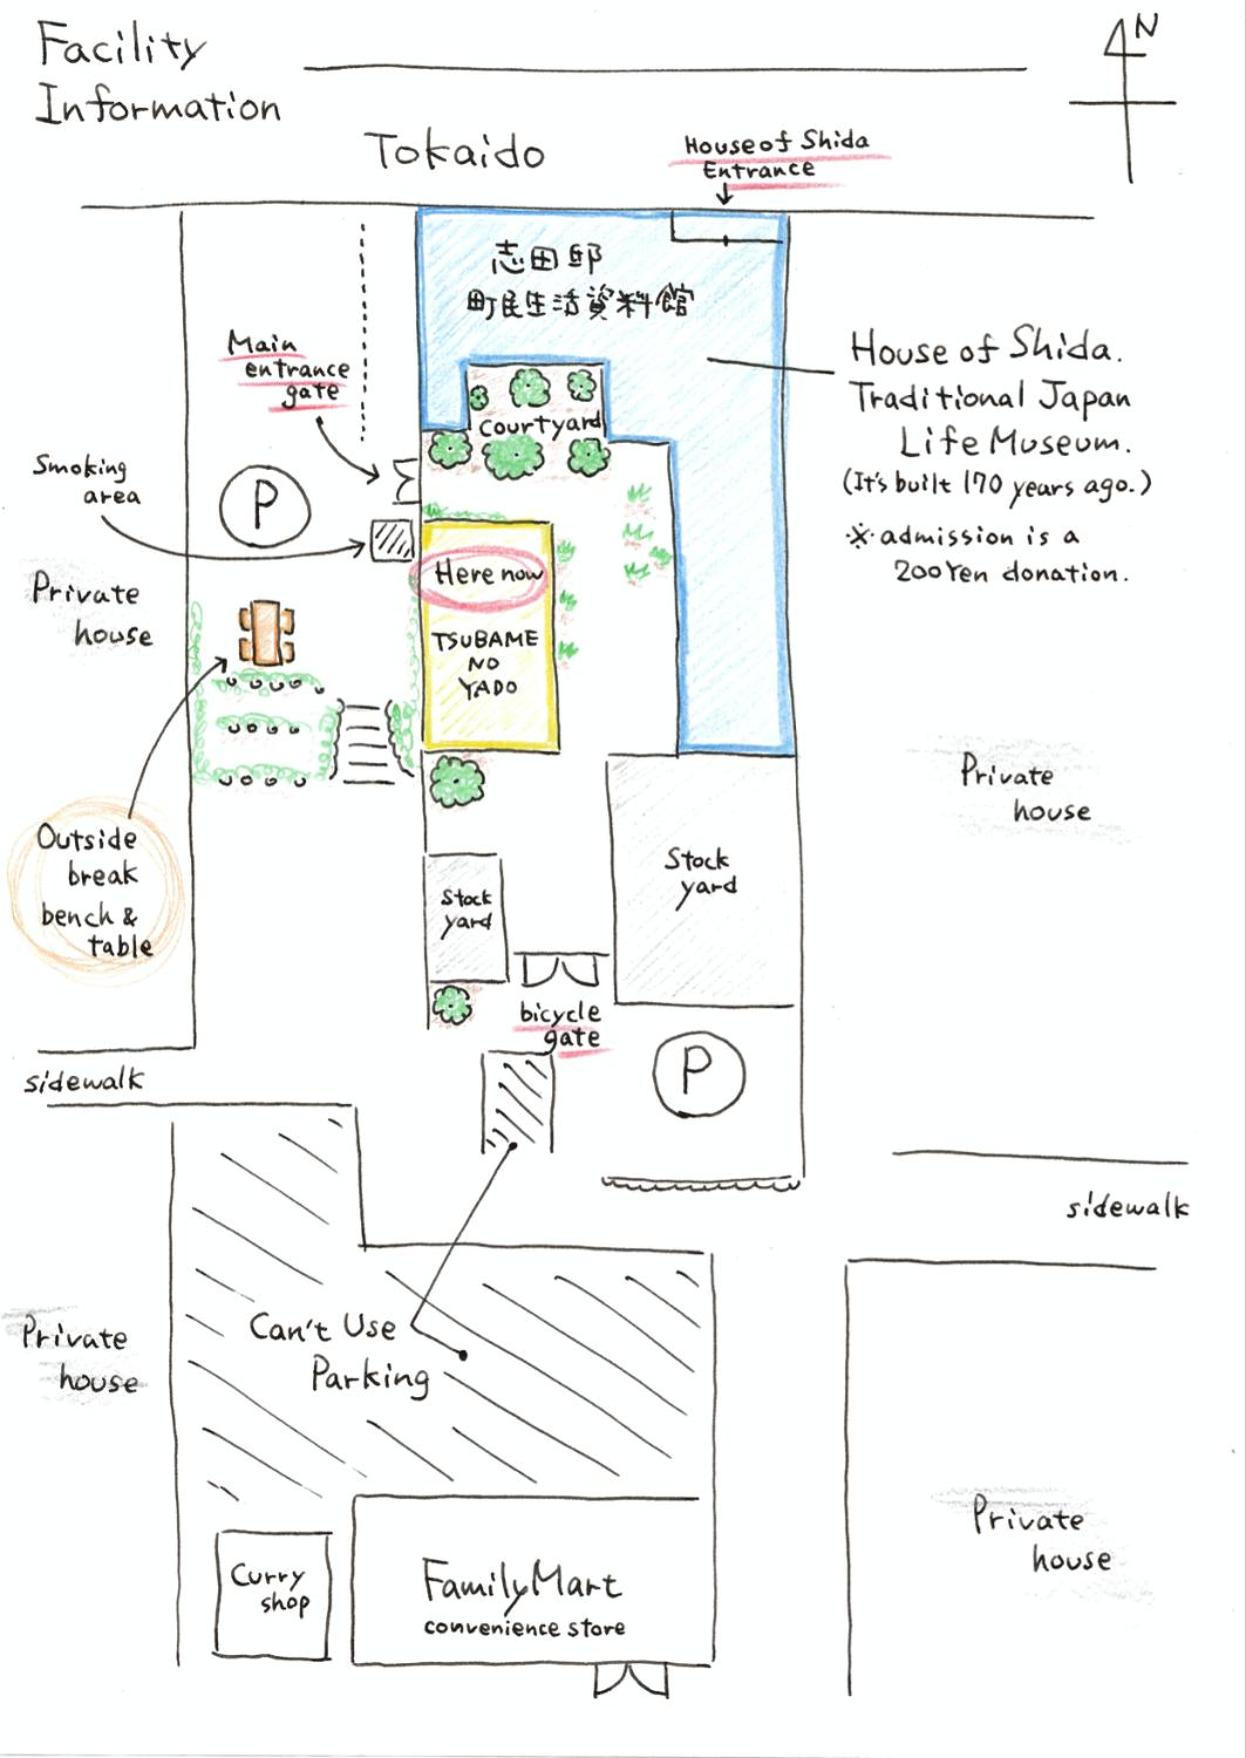 Facility
Information
N
Tokaido
House of Shida
Entrance
志田邸
町民生活資料館
Main
entrance
gate
House of Shida.
Traditional Japan
Life Museum.
(It's built 170 years ago.)
※ admission is a
200 Yen donation.
courtyard
Smoking
area
P
Here now
Private
house
TSUBAME
NO
YADO
Private
house
Outside
break
bench &
table
Stock
yard
Stock
yard
bicycle
gate
P
sidewalk
sidewalk
Can't Use
Parking
Private
house
Private
house
Curry
shop
FamilyMart
convenience store